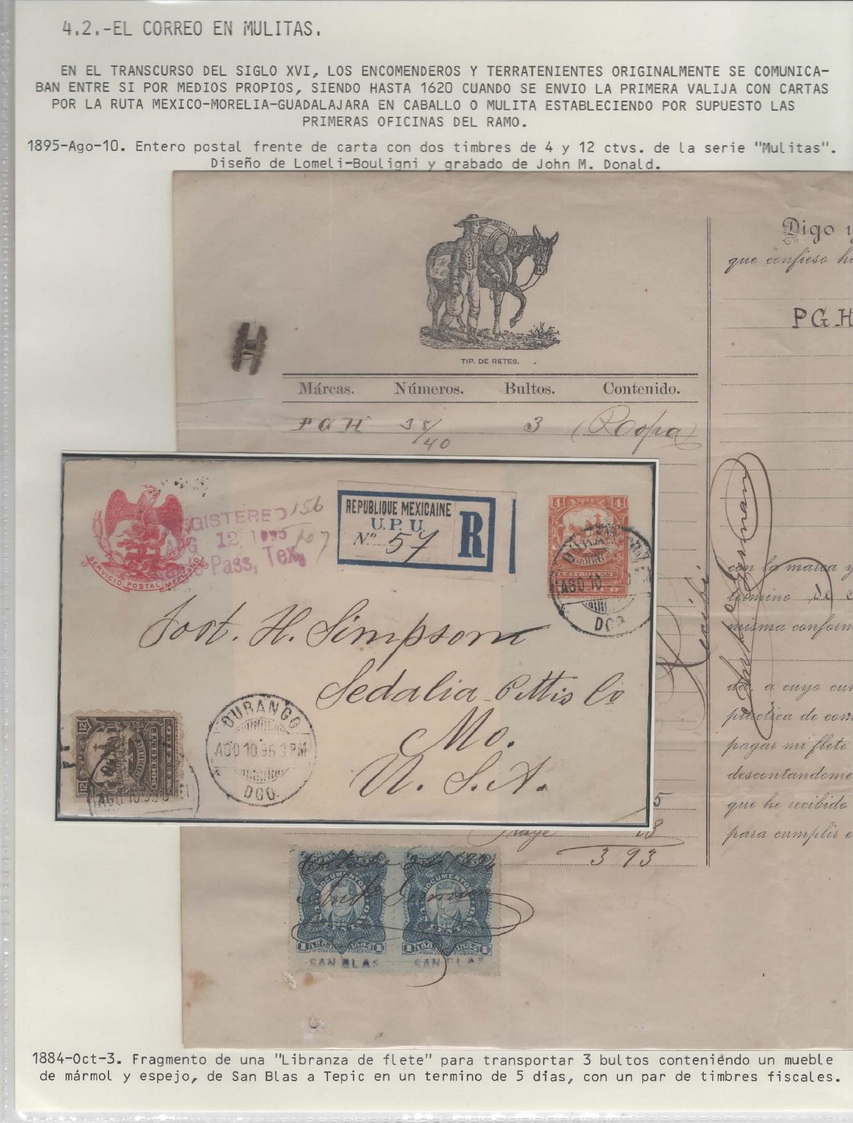 4.2.-EL CORREO EN MULITAS.
EN EL TRANSCURSO DEL SIGLO XVI, LOS ENCOMENDEROS Y TERRATENIENTES ORIGINALMENTE SE COMUNICA-
BAN ENTRE SI POR MEDIOS PROPIOS, SIENDO HASTA 1620 CUANDO SE ENVIO LA PRIMERA VALIJA CON CARTAS
POR LA RUTA MEXICO-MORELIA-GUADALAJARA EN CABALLO O MULITA ESTABLECIENDO POR SUPUESTO LAS
PRIMERAS OFICINAS DEL RAMO.
1895-Ago-10. Entero postal frente de carta con dos timbres de 4 y 12 ctvs. de la serie "Mulitas".
Diseño de Lomeli-Bouligni y grabado de John M. Donald.
TIP. DE RETES.
Márcas. Números. Bultos. Contenido.
PGH 38/40 3 (Ropa)
Digo y
que confieso h
PGH
con la marca y
término de
misma conform
da, a cuyo cu
práctica de co
pagar mi flete
descontandome
que he recibido
para cumplir
Recibí
SERVICIO POSTAL MEXICANO
GISTERED
12 1895
Pass, Tex.
156
107
REPUBLIQUE MEXICAINE
U.P.U.
No. 57
R
4 4
AGO 10
DGO.
Jost. H. Simpson
Sedalia Pettis Co
Mo.
U.S.A.
12
AGO 10.95
DURANGO
AGO 10.95 3 PM
DGO.
3 93
DOCUMENTOS DOCUMENTOS
SAN BLAS SAN BLAS
1884-Oct-3. Fragmento de una "Libranza de flete" para transportar 3 bultos conteniéndo un mueble
de mármol y espejo, de San Blas a Tepic en un termino de 5 dias, con un par de timbres fiscales.